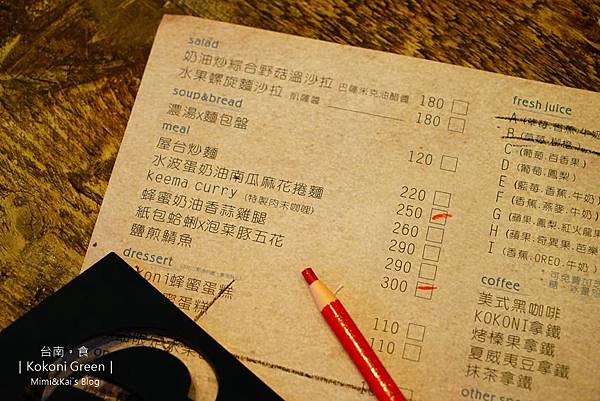 salad
奶油炒綜合野菇溫沙拉 巴薩米克油醋醬 180
水果螺旋麵沙拉 凱薩醬 180
soup&bread
濃湯x麵包盤 120
meal
屋台炒麵 220
水波蛋奶油南瓜麻花捲麵 250
keema curry (特製肉末咖哩) 260
蜂蜜奶油香蒜雞腿 290
紙包蛤蜊x泡菜豚五花 290
鹽煎鯖魚 300
dessert
koni蜂蜜蛋糕 110
蛋糕 110
fresh juice
A
B
C (葡萄.百香果)
D (葡萄.鳳梨)
E (藍莓.香蕉.牛奶)
F (香蕉.燕麥.牛奶)
G (蘋果.鳳梨.紅火龍果
H (蘋果.奇異果.芭樂
I (香蕉.OREO.牛奶)
coffee
美式黑咖啡
KOKONI拿鐵
烤榛果拿鐵
夏威夷豆拿鐵
抹茶拿鐵
other
台南・食
| Kokoni Green |
Mimi&Kai's Blog